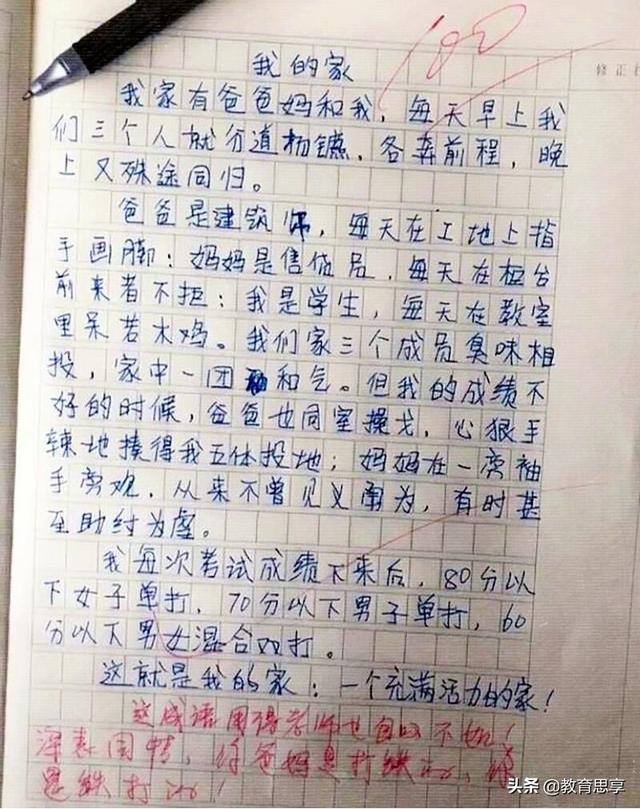 100
修正
我的家
我家有爸爸妈和我，每天早上我
们三个人就分道扬镳，各奔前程，晚
上又殊途同归。
爸爸是建筑师，每天在工地上指
手画脚；妈妈是售货员，每天在柜台
前来者不拒；我是学生，每天在教室
里呆若木鸡。我们家三个成员臭味相
投，家中一团和气。但我的成绩不
好的时候，爸爸也同室操戈，心狠手
辣地揍得我五体投地；妈妈在一旁袖
手旁观，从来不曾见义勇为，有时甚
至助纣为虐。
我每次考试成绩下来后，80分以
下女子单打，70分以下男子单打，60
分以下男女混合双打。
这就是我的家：一个充满活力的家！
这成语用得老师也自叹不如！
深表同情，你爸妈是打铁的，你
是铁打的！
头条 @教育思享